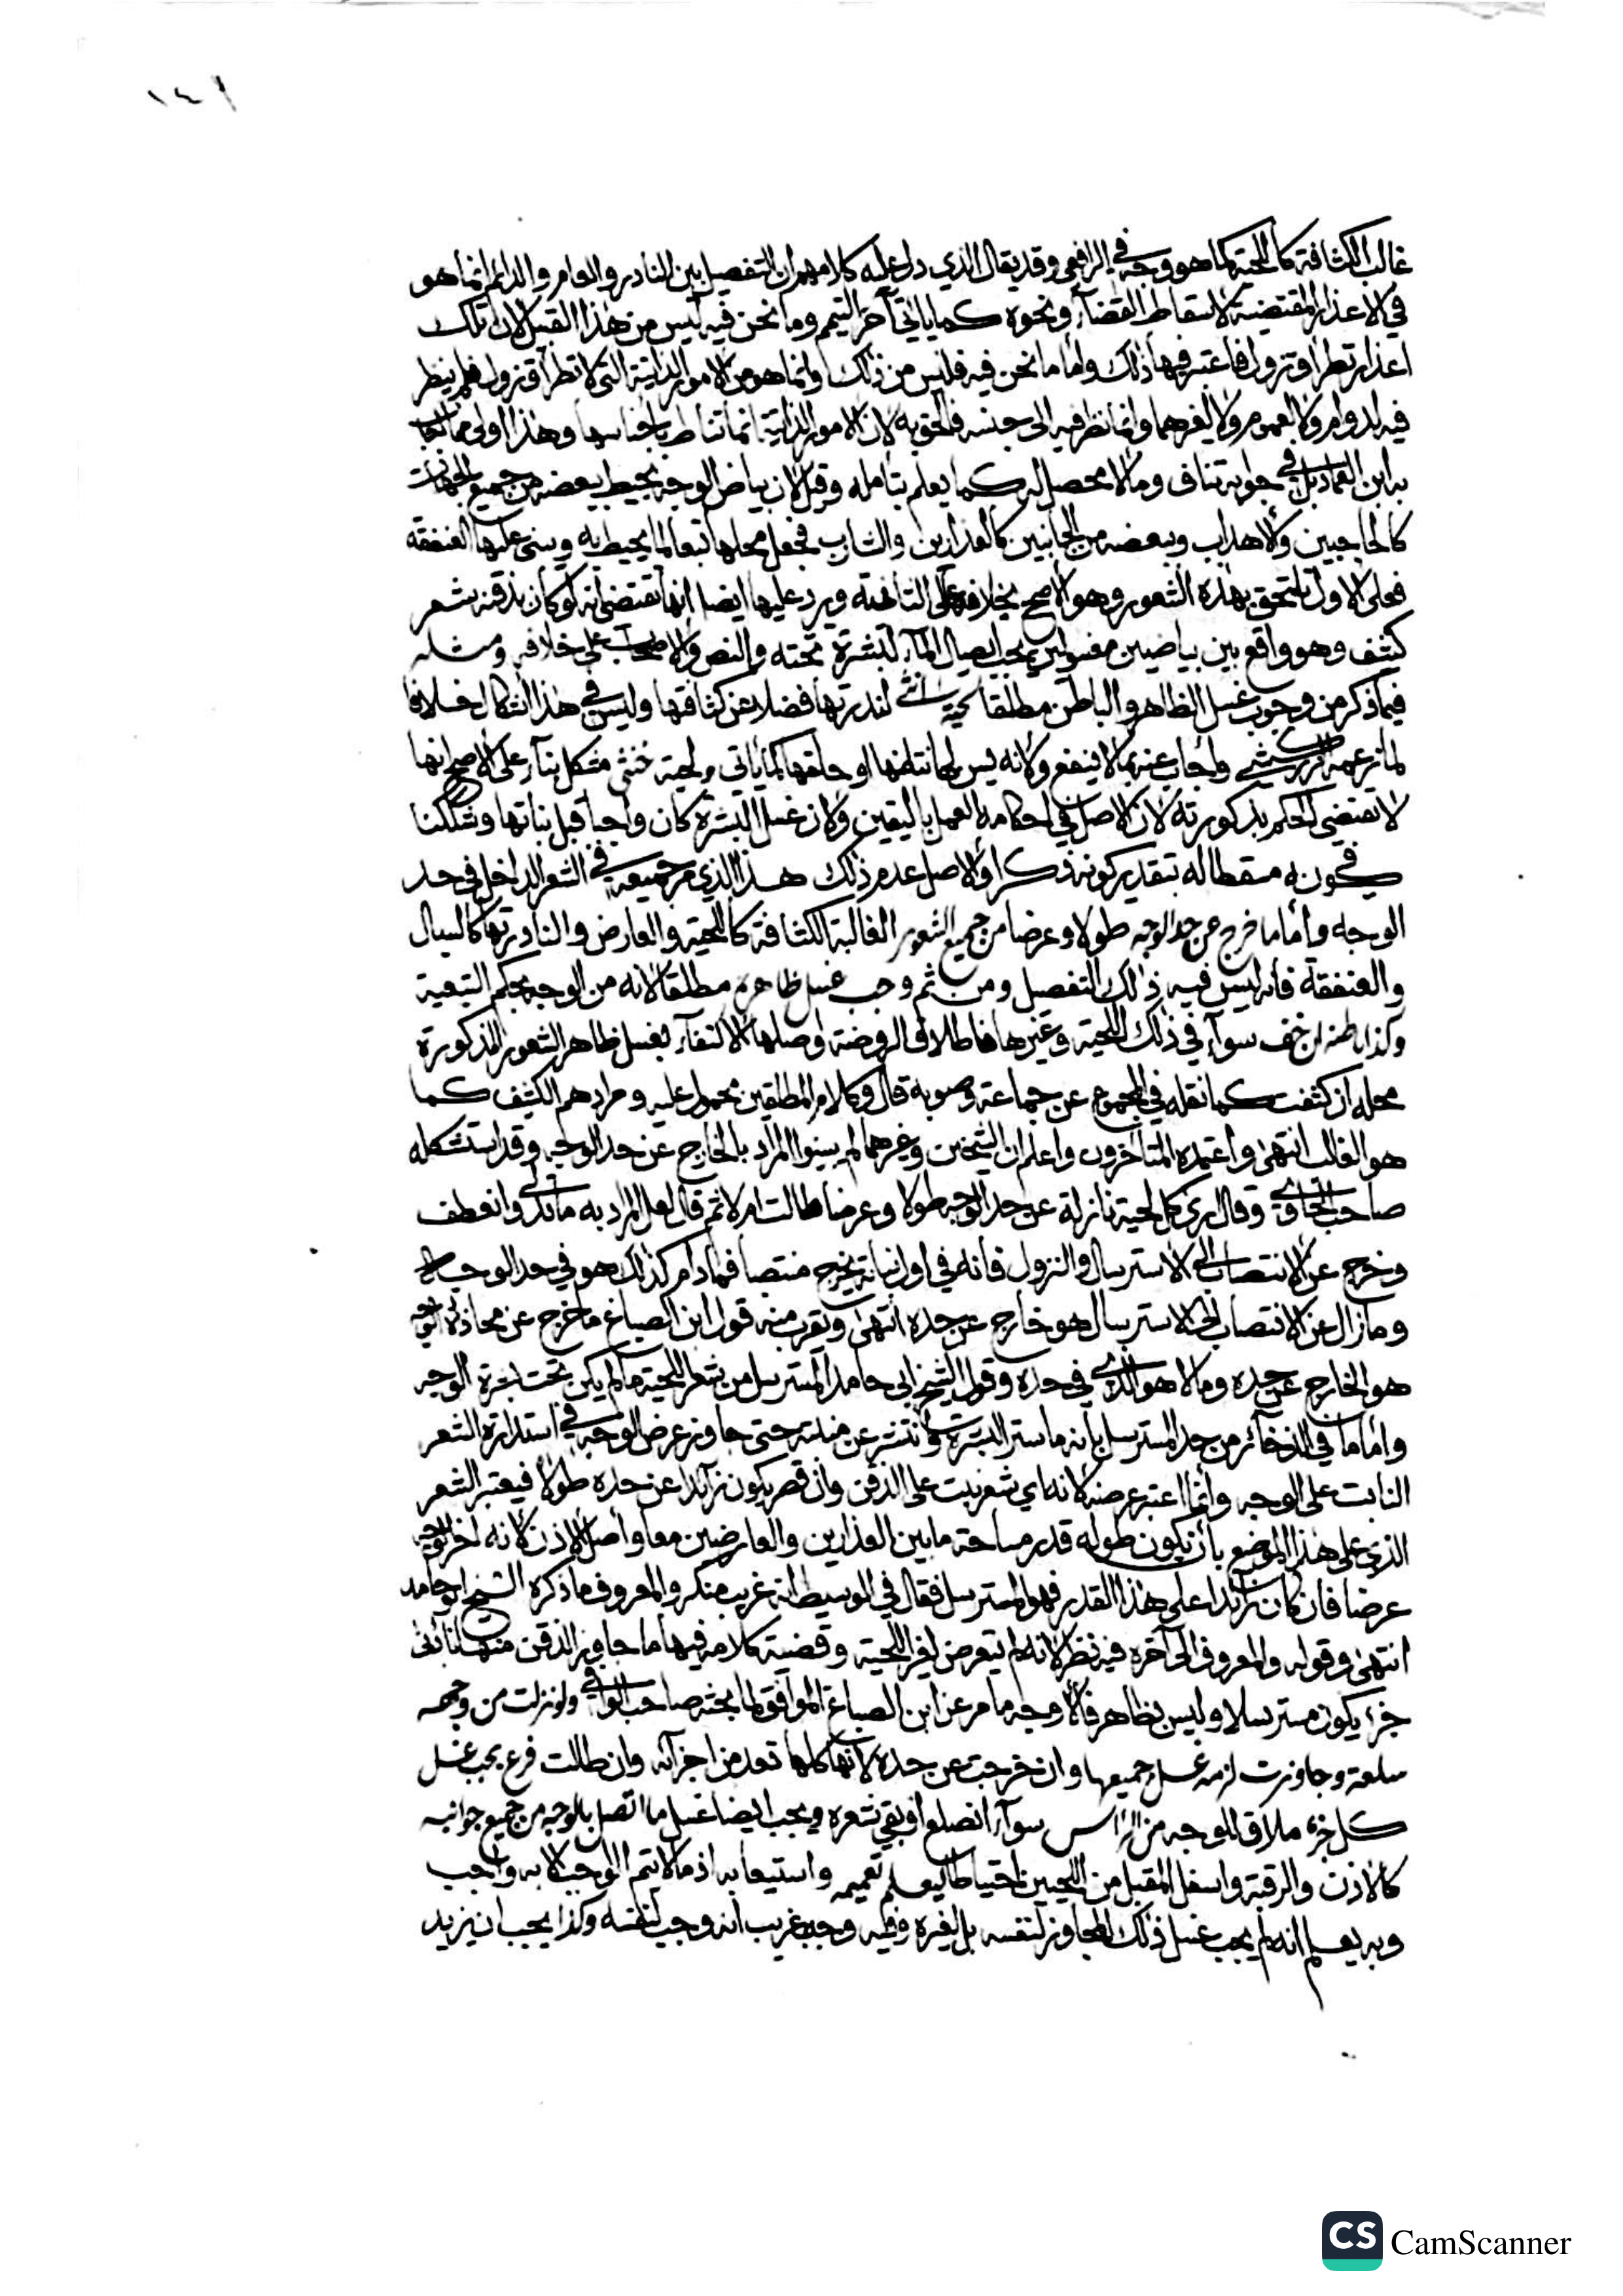 ١٤١
غالب الكثافة كاللحية كما هو وجه في الرافعي وقد يقال الذي دل عليه كلامهم ان التفصيل بين النادر والعام والدائم انما هو
في الاعذار المقتضية لاسقاط القضاء ونحوه كما ياتي آخر التيمم وما نحن فيه ليس من هذا القبيل لان تلك
اعذار تطرا وتزول فاعتبر فيها ذلك واما ما نحن فيه فليس من ذلك وانما هو من الامور الذاتية التي لا تطرا وتزول فلم ينظر
فيه لدوام ولا لعموم ولا لغيرهما وانما نظر فيه الى جنسه فالحق به لان الامور الذاتية انما تناط باجناسها وهذا اولى مما اجاب
به ابن العماد بل في جوابه تناف وما لا محصل له كما يعلم بتامله وقيل لان بياض الوجه يحيط ببعضه من جميع الجهات
كالحاجبين والاهداب وببعضه من الجانبين كالعذارين والشارب فجعل محلها تبعا لما يحيط به وينبني عليهما العنفقة
فعلى الاول تلتحق بهذه الشعور وهو الاصح بخلافه على الثانية ويرد عليها ايضا انها تقتضي انه لو كان بذقنه شعر
كثيف وهو واقع بين بياضين مغسولين يجب ايصال الماء لبشرة تحته والنص والاصحاب على خلافه ومثله
فيما ذكر من وجوب غسل الظاهر والباطن مطلقا لحية انثى لندرتها فضلا عن كثافتها وليس في هذا اشكال خلافا
لما زعمه الزركشي واجاب عنه بما لا ينفع ولانه يسن لها نتفها او حلقها كما ياتي ولحية خنثى مشكل بناء على الاصح انها
لا تقتضي الحكم بذكورته لان الاصل في احكامه العمل باليقين ولان غسل البشرة كان واجبا قبل نباتها وشككنا
في كونه مسقطا له بتقدير كونه ذكرا والاصل عدم ذلك هذا الذي مر جميعه في الشعر الداخل في حد
الوجه واما ما خرج عن حد الوجه طولا وعرضا من جميع الشعور الغالبة الكثافة كاللحية والعارض والنادرتها كالسبال
والعنفقة فانه ليس فيه ذلك التفصيل ومن ثم وجب غسل ظاهره مطلقا لانه من الوجه بحكم التبعية
وكذا باطنه ان خف سواء في ذلك اللحية وغيرها فاطلاق الروضة واصلها الاكتفاء بغسل ظاهر الشعور المذكورة
محله ان كثفت كما نقله في المجموع عن جماعة وصوبه قال وكلام المطلقين محمول عليه ومرادهم الكثيف كما
هو الغالب انتهى واعتمده المتاخرون واعلم ان الشيخين وغيرهما لم يبينوا المراد بالخارج عن حد الوجه وقد استشكله
صاحب الوافي وقال ارى كل لحية نازلة عن حد الوجه طولا وعرضا طالت ام لا ثم قال لعل المراد به ما تدلى وانعطف
وخرج عن الانتصاب الى الاسترسال والنزول فانه في اول نباته يخرج منتصبا فما دام كذلك هو في حد الوجه
وما زال عن الانتصاب الى الاسترسال هو خارج عن حده انتهى ويقرب منه قول ابن الصباغ ما خرج عن محاذاة الوجه
هو الخارج عن حده وما لا هو الذي في حده وقول الشيخ ابي حامد المسترسل من شعر اللحية ما لم يكن تحته بشرة الوجه
واما ما في الذخائر من حد المسترسل بانه ما ستر البشرة وانتشر عن منبته حتى جاوز عرض الوجه في استدارة الشعر
النابت على الوجه وانما اعتبر عرضه لانه اي شعر ينبت على الذقن وان قصر يكون زائدا عن حده طولا فيعتبر الشعر
الذي على هذا الموضع بان يكون طوله قدر مساحة ما بين العذارين والعارضين معا واصل الاذن لانه اخر الوجه
عرضا فان كان زائدا على هذا القدر فهو المسترسل فقال في الوسيط انه غريب منكر والمعروف ما ذكره الشيخ ابو حامد
انتهى وقوله والمعروف الى آخره فيه نظر لانه لم يتعرض لغير اللحية وقضية كلامه فيها ما جاوز الذقن منها بادنى
جزء يكون مسترسلا وليس بظاهر فالاوجه ما مر عن ابن الصباغ الموافق لما بحثه صاحب الوافي ولو نزلت من وجهه
سلعة وجاوزت لزمه غسل جميعها وان خرجت عن حده لانها كلها تعد من اجزائه وان طالت فرع يجب غسل
كل جزء ملاق للوجه من الراس سواء انصلع او بقي شعره ويجب ايضا غسل ما اتصل بالوجه من جميع جوانبه
كالاذن والرقبة واسفل المقبل من اللحيين احتياطا ليعلم تعميمه واستيعابه اذ ما لا يتم الواجب الا به واجب
وبه يعلم انه لم يجب غسل ذلك المجاوز لنفسه بل لغيره وفيه وجه غريب انه وجب لنفسه وكذا يجب ان يزيد
CS CamScanner